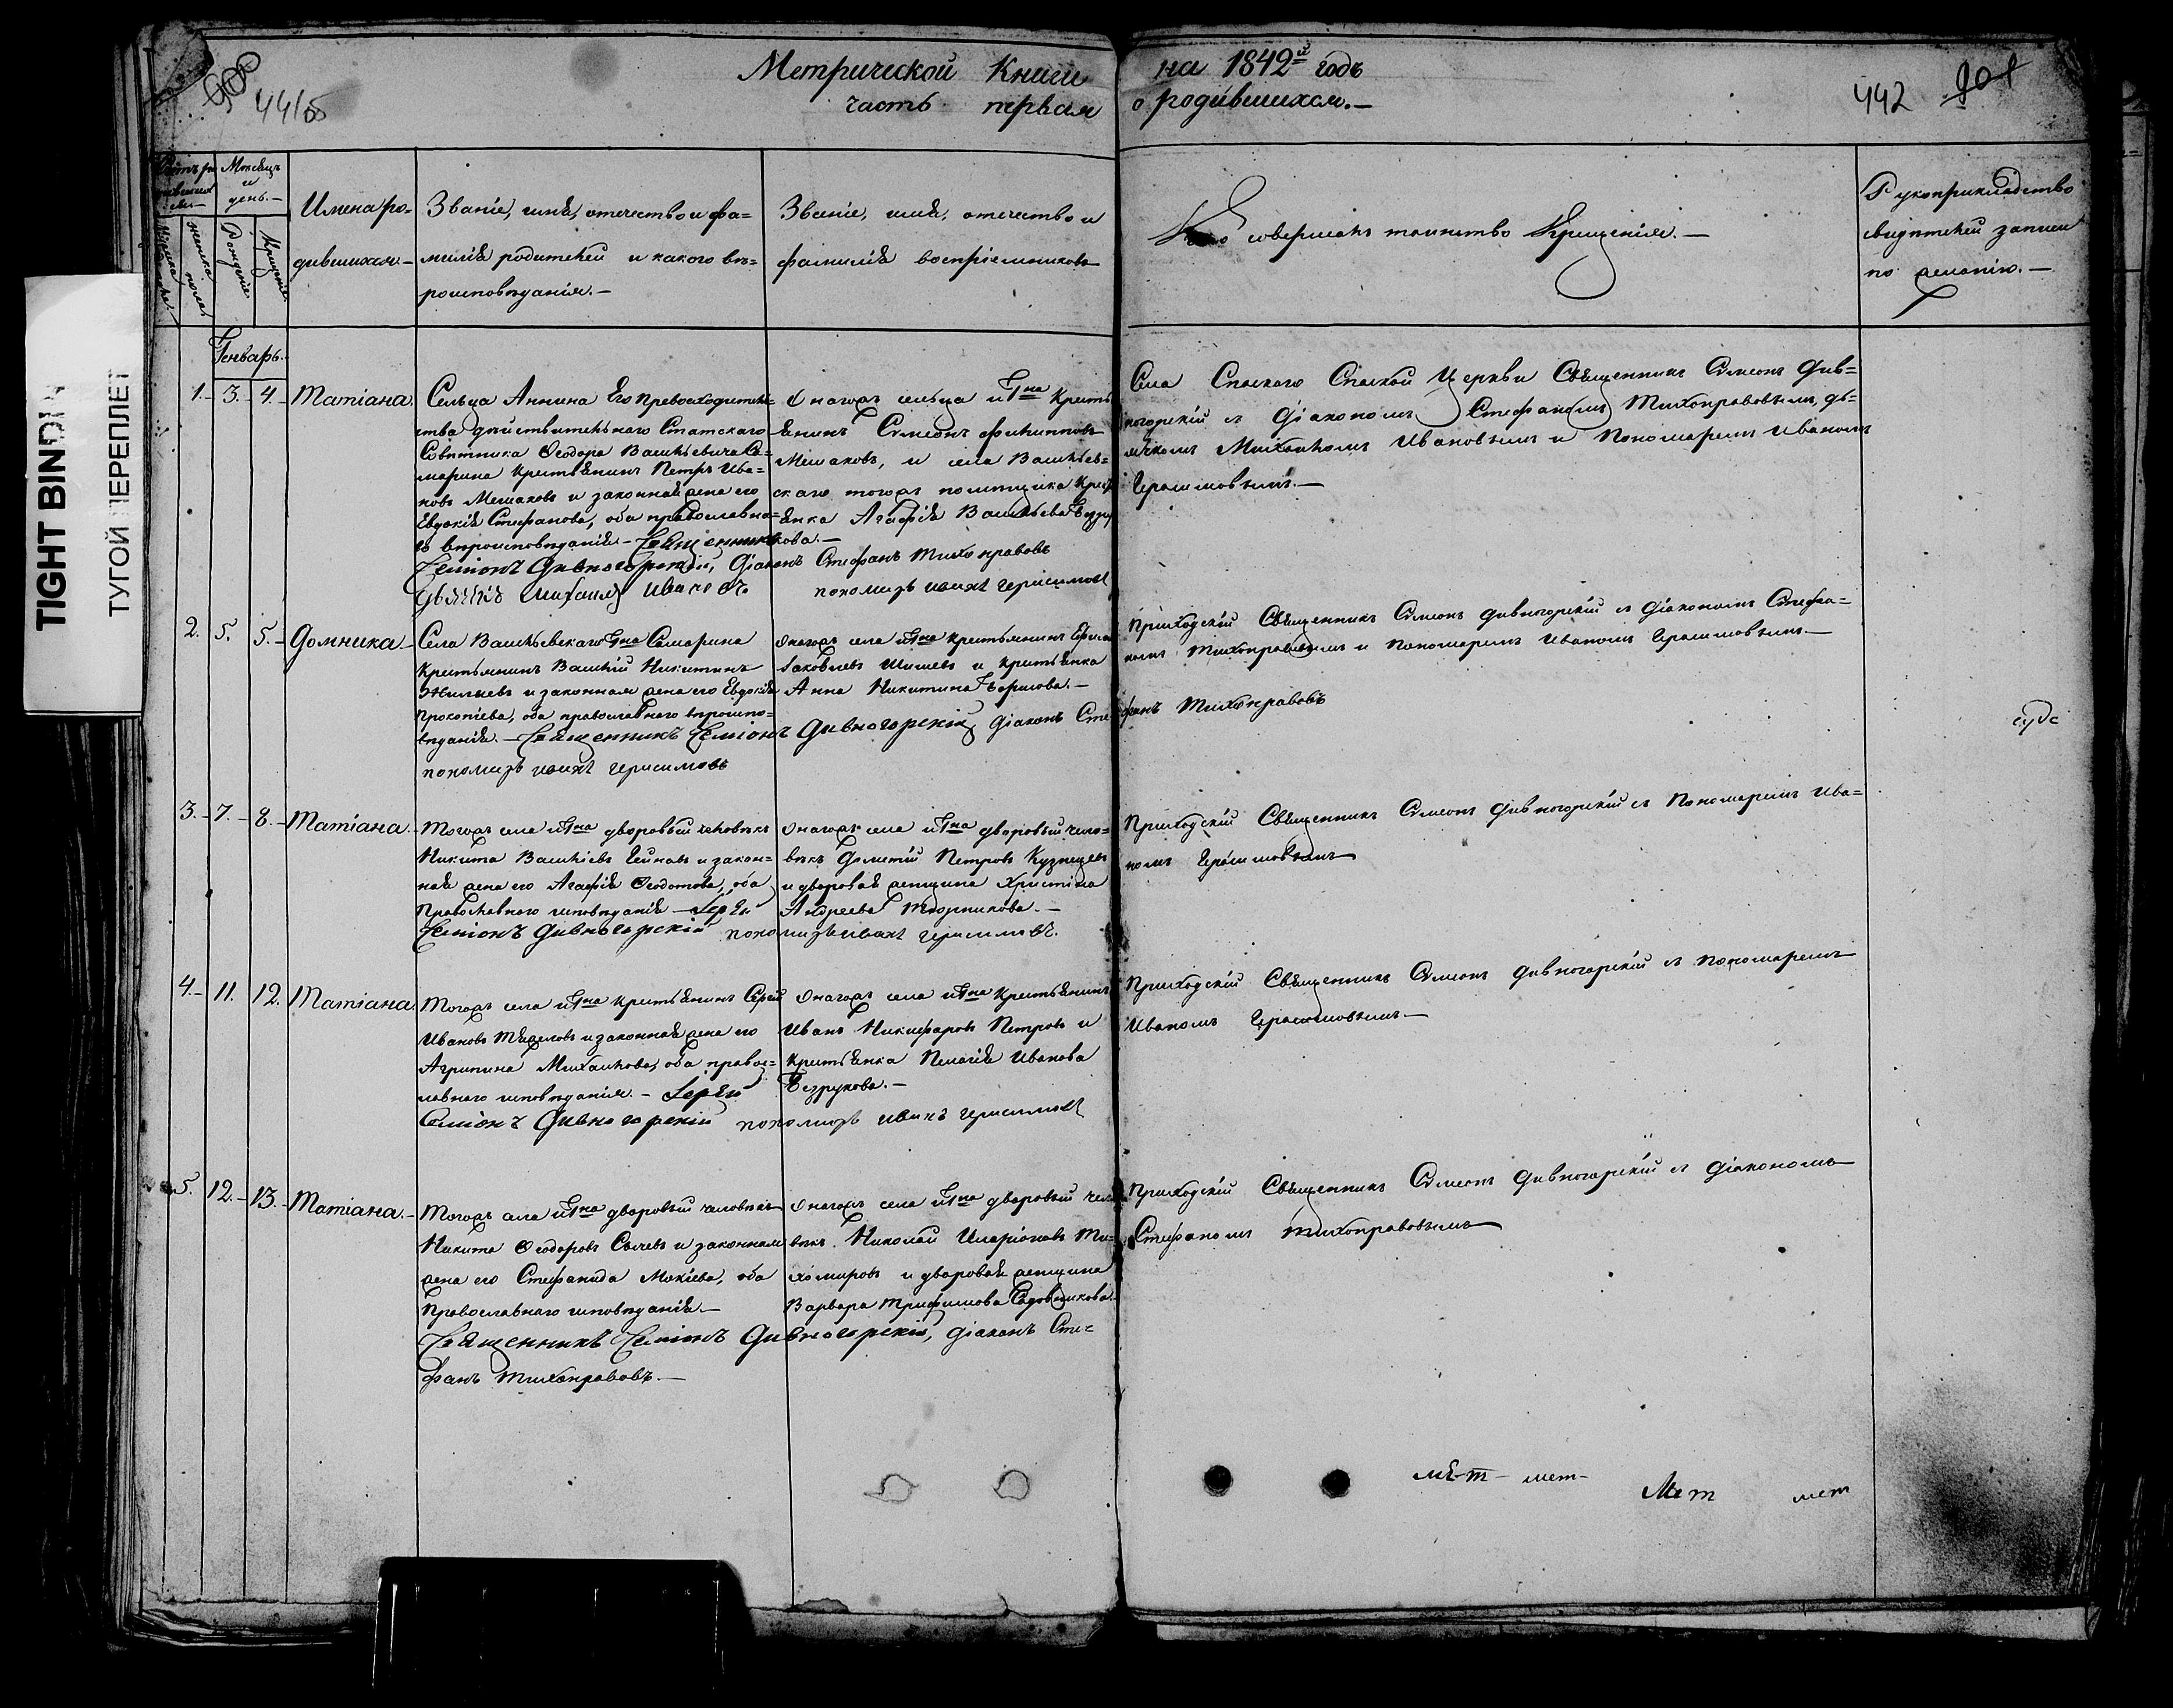 TIGHT BINDING
ТУГОЙ ПЕРЕПЛЕТ
Метрической Книги на 1842й годъ
часть первая о родившихся.—
442 901
Месяцъ
и
день.—
Имена ро=
дившихся.—
Званіе, имя, отечество и фа=
милія родителей и какого вѣ=
роисповѣданія.—
Званіе, имя, отечество и
фамилія воспріемниковъ
Кто совершалъ таинство Крещенія.—
Рукоприкладство
свидѣтелей записи
по желанію.—
мужеска пола
женска пола
Рожденіе
Крещеніе
Генварь.
1. 3. 4. Татіана.
Сельца Аннина Его Превосходитель=
ства дѣйствительнаго Статскаго
Совѣтника Ѳеодора Васильевича Са=
марина крестьянинъ Петръ Ива=
новъ Мешаковъ и законная жена его
Евдокія Стефанова, оба православна=
го вѣроисповѣданія — Священникъ
Семіонъ Дивногорскій, Діаконъ Стефанъ Тихонравовъ
Дьячекъ Михаилъ Ивановъ пономарь Иванъ Герасимовъ
Онагожъ сельца и Гна кресть
янинъ Симеонъ Филипповъ
Мешаковъ, и села Васильев=
скаго тогожъ помѣщика крест
янка Агафія Васильева Безру
кова.—
Села Спаскаго Спаской Церкви Священникъ Симеонъ Див=
ногорскій съ Діакономъ Стефаномъ Тихонравовымъ, дь=
ячкомъ Михаиломъ Ивановымъ и Пономаремъ Иваномъ
Герасимовымъ.—
2. 5. 5. Домника.
Села Васильевскаго Гна Самарина
крестьянинъ Василій Никитинъ
Жильцевъ и законная жена его Евдокія
Прокопіева, оба православнаго вѣроиспо=
вѣданія.— Священникъ Семіонъ Дивногорскій Діаконъ Сте
фанъ Тихонравовъ
пономарь Иванъ Герасимовъ
Онагожъ села и Гна крестьянинъ
Іаковлевъ Шишевъ и крестьянка
Анна Никитина Борисова.—
Приходскій Священникъ Симеонъ Дивногорскій съ Діакономъ Стефа=
номъ Тихонравовымъ и Пономаремъ Иваномъ Герасимовымъ—
3. 7. 8. Татіана.
Тогожъ села и Гна дворовый человѣкъ
Никита Васильевъ и закон=
ная жена его Агафія Ѳеодотова, оба
Православнаго исповѣданія — Іерей
Семіонъ Дивногорскій пономарь Иванъ Герасимовъ.
Онагожъ села и Гна дворовый чело=
вѣкъ Дометій Петровъ Кузнецевъ
и дворовая женщина Христина
Андреева.—
Приходскій Священникъ Симеонъ Дивногорскій съ Пономаремъ Ива=
номъ Герасимовымъ
4. 11. 12. Татіана.
Тогожъ села и Гна крестьянинъ Сергей
Ивановъ и законная жена его
Агрипина Михаилова, оба правос=
лавнаго исповѣданія.— Іерей
Семіонъ Дивногорскій пономарь Иванъ Герасимовъ
Онагожъ села и Гна крестьянинъ
Иванъ Никифоровъ Петровъ и
крестьянка Пелагія Иванова
Безрукова.—
Приходскій Священникъ Симеонъ Дивногорскій съ Пономаремъ
Иваномъ Герасимовымъ—
5. 12. 13. Татіана.
Тогожъ села и Гна дворовый человѣкъ
Никита Ѳеодоровъ Сычевъ и законная
жена его Стефанида Мокіева, оба
Православнаго исповѣданія.—
Священникъ Семіонъ Дивногорскій, Діаконъ Сте=
фанъ Тихонравовъ.—
Онагожъ села и Гна дворовый чело
вѣкъ Николай Иларіоновъ Ти=
хомировъ и дворовая женщина
Варвара Трифимова Садовникова.
Приходскій Священникъ Симеонъ Дивногорскій съ Діакономъ
Стефаномъ Тихонравовымъ